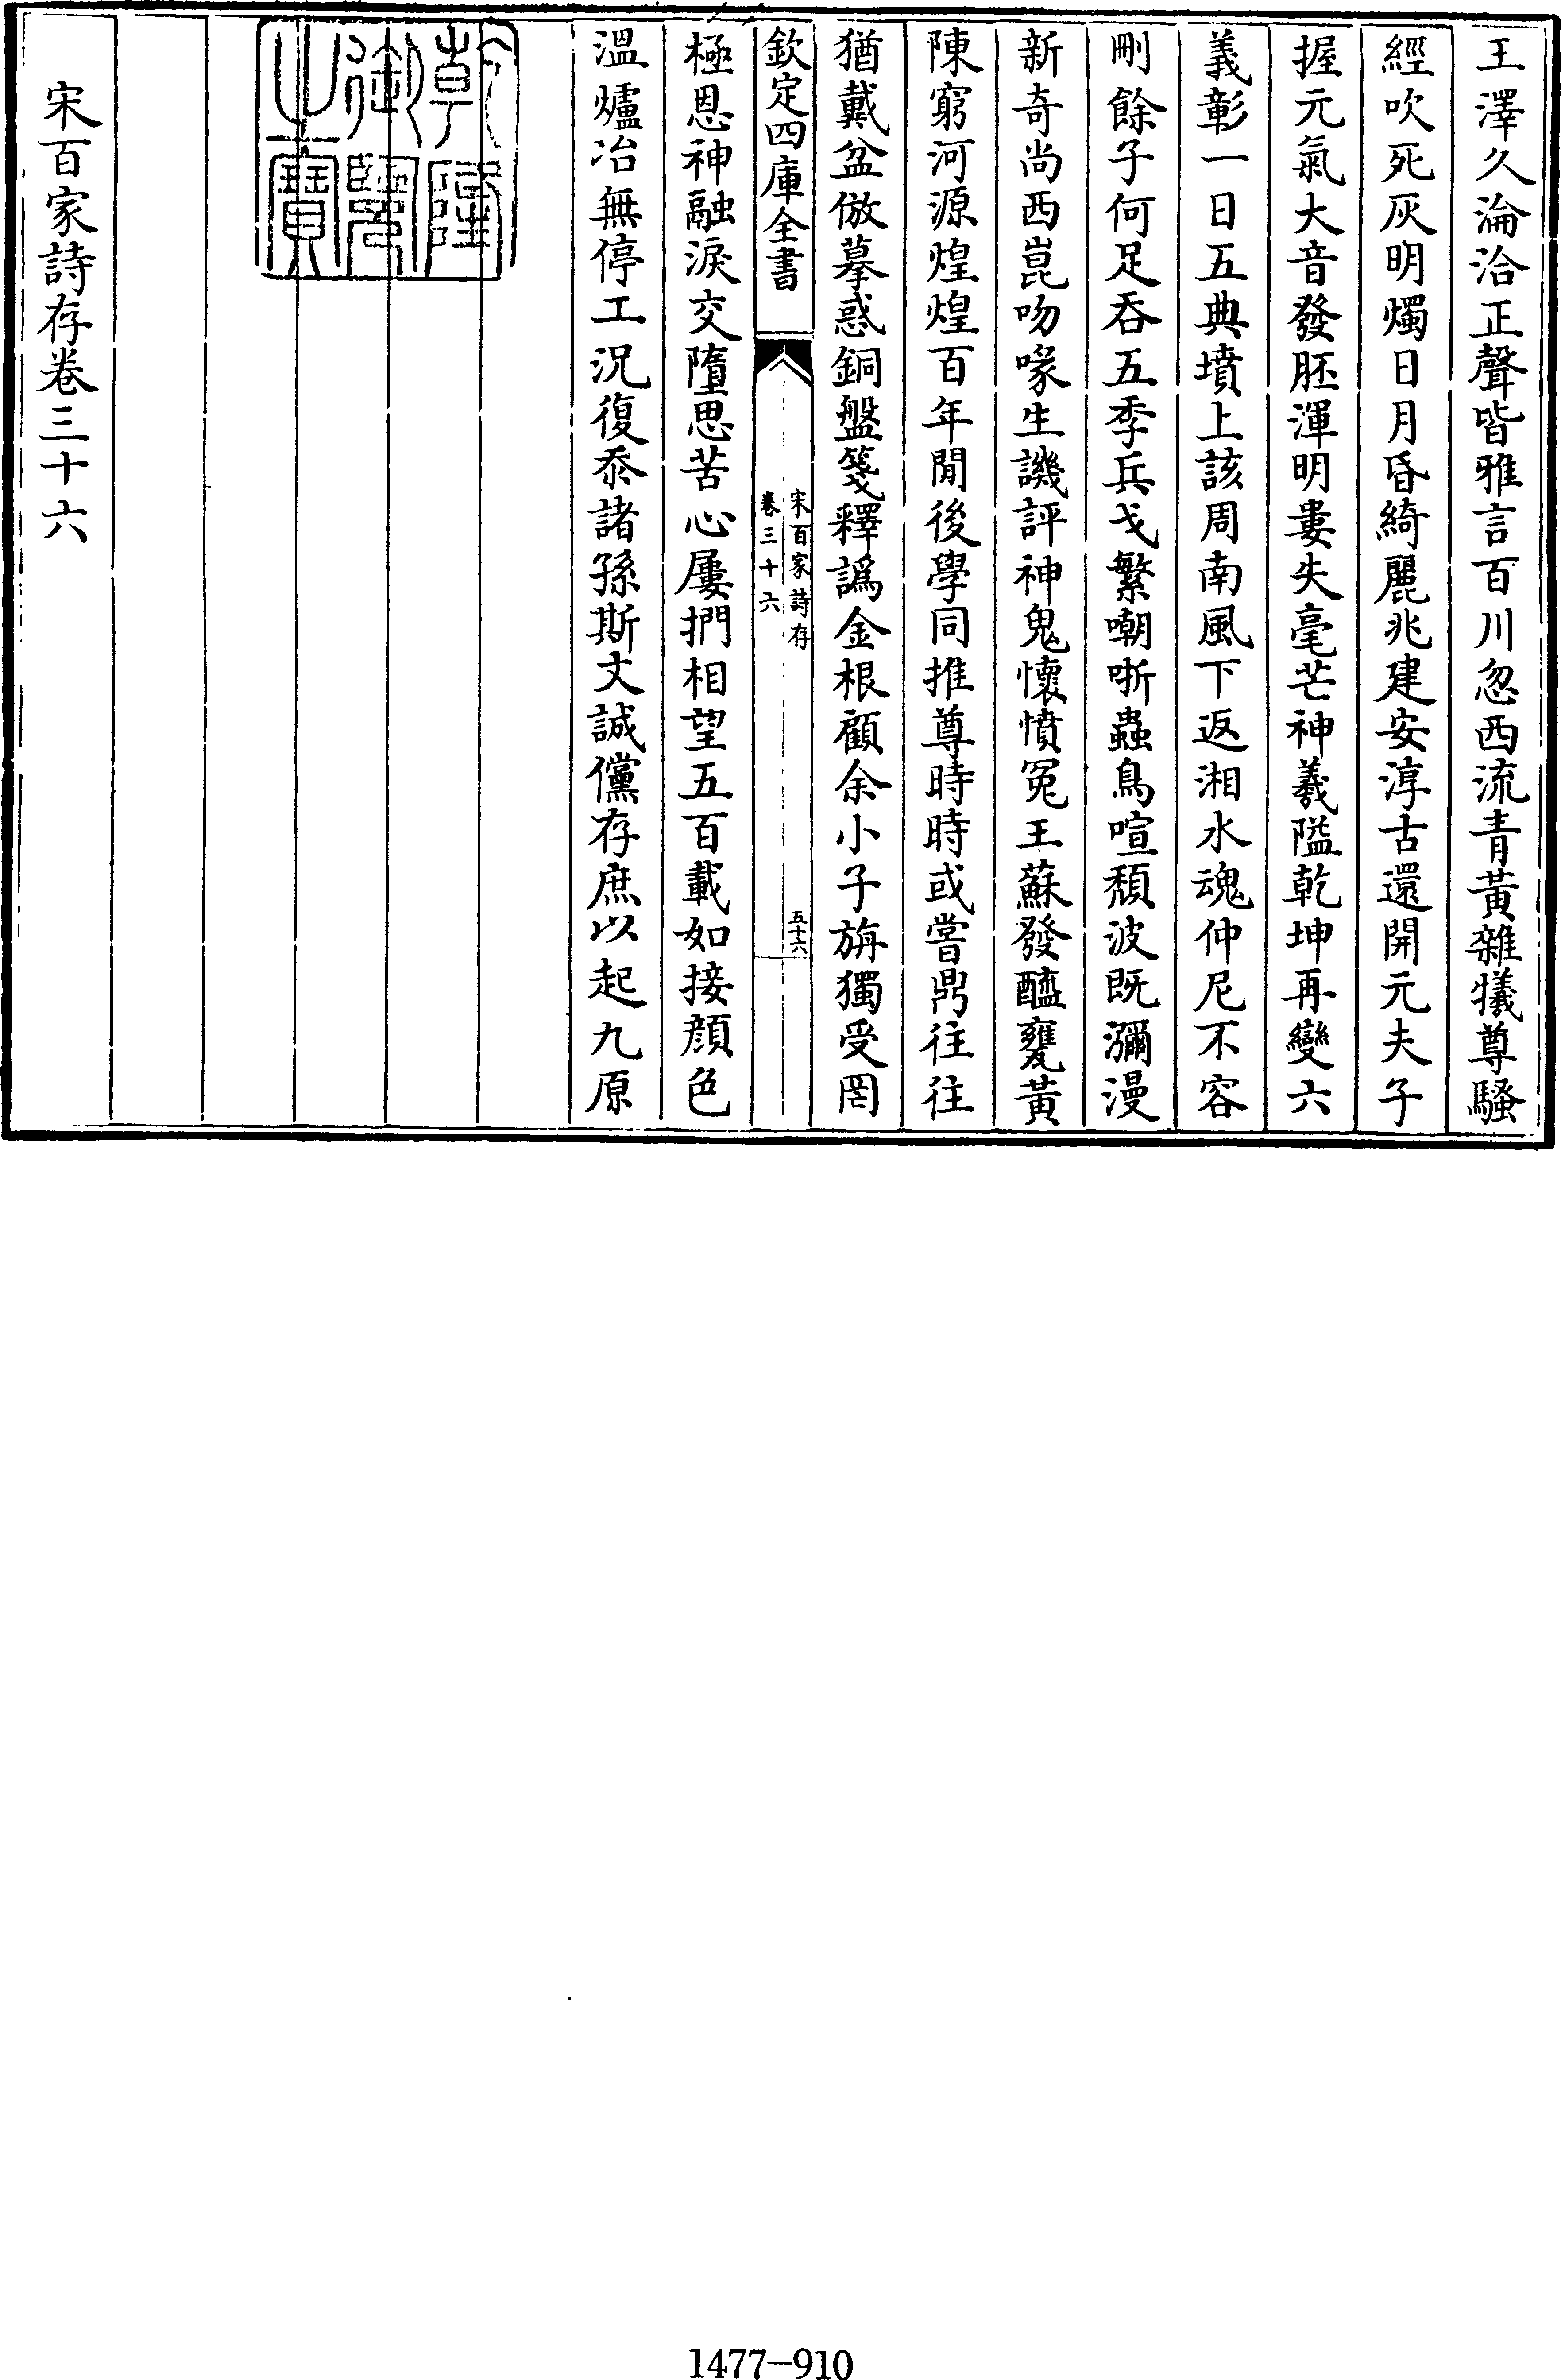 王澤久淪洽正聲皆雅言百川忽西流青黃雜犧尊騷
經吹死灰明燭日月昏綺麗兆建安淳古還開元夫子
握元氣大音發胚渾明婁失毫芒神羲隘乾坤再變六
義彰一日五典墳上該周南風下返湘水魂仲尼不容
刪餘子何足吞五季兵戈繁嘲哳蟲鳥喧頹波既瀰漫
新奇尚西崑吻喙生譏評神鬼懷憤冤王蘇發醯甕黃
陳窮河源煌煌百年間後學同推尊時時或嘗鼎往往
猶戴盆倣摹惑銅盤箋釋譌金根顧余小子旃獨受罔
欽定四庫全書
宋百家詩存
卷三十六
五十六
極恩神融淚交墮思苦心屢捫相望五百載如接顏色
溫爐冶無停工況復忝諸孫斯文誠儻存庶以起九原
乾隆御覽之寶
宋百家詩存卷三十六
1477-910